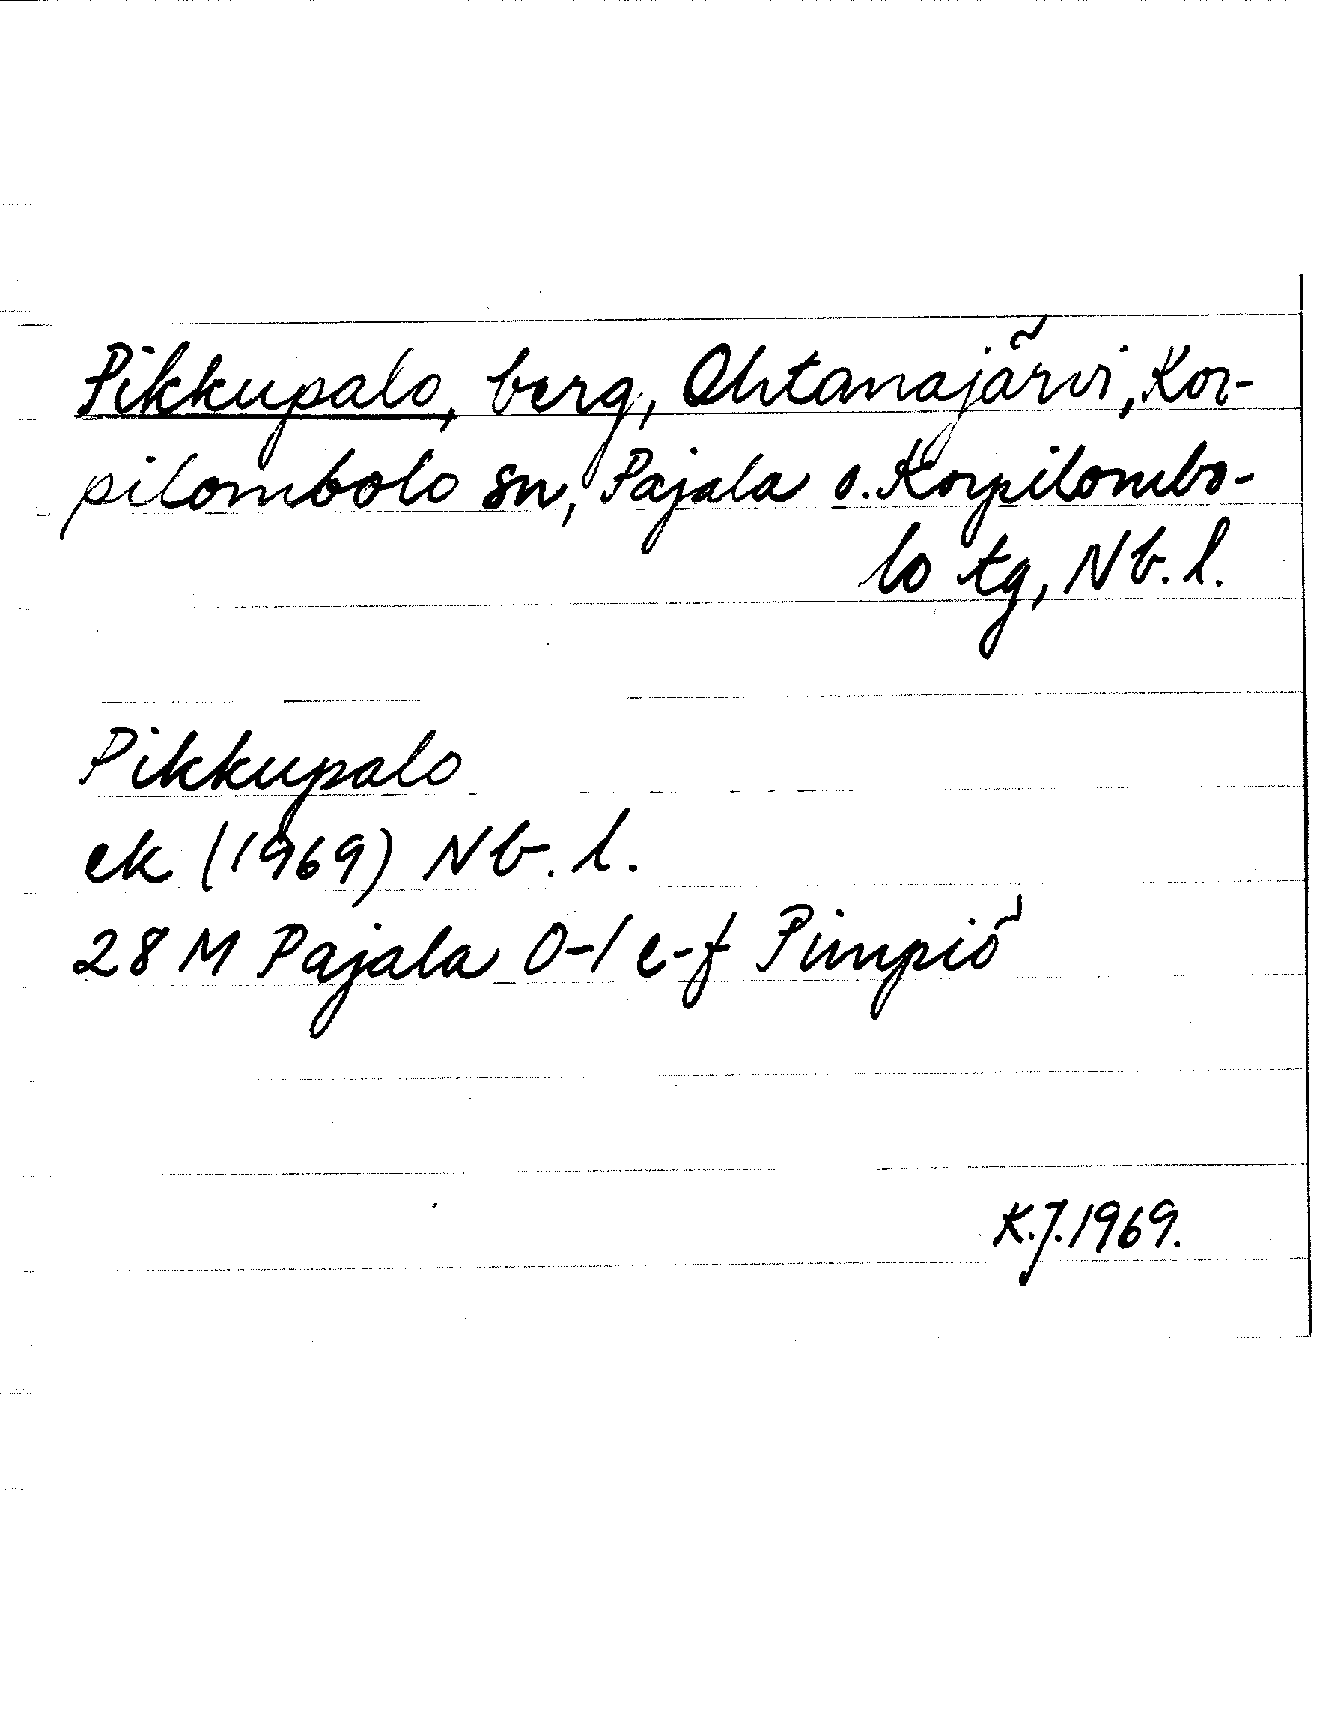 Pikkupalo, berg, Ohtanajärvi, Kor-
pilombolo sn, Pajala o. Korpilombo-
lo tg, Nb. l.
Pikkupalo
ek (1969) Nb. l.
28 M Pajala 0-1 e-f Pimpiö
K.J. 1969.